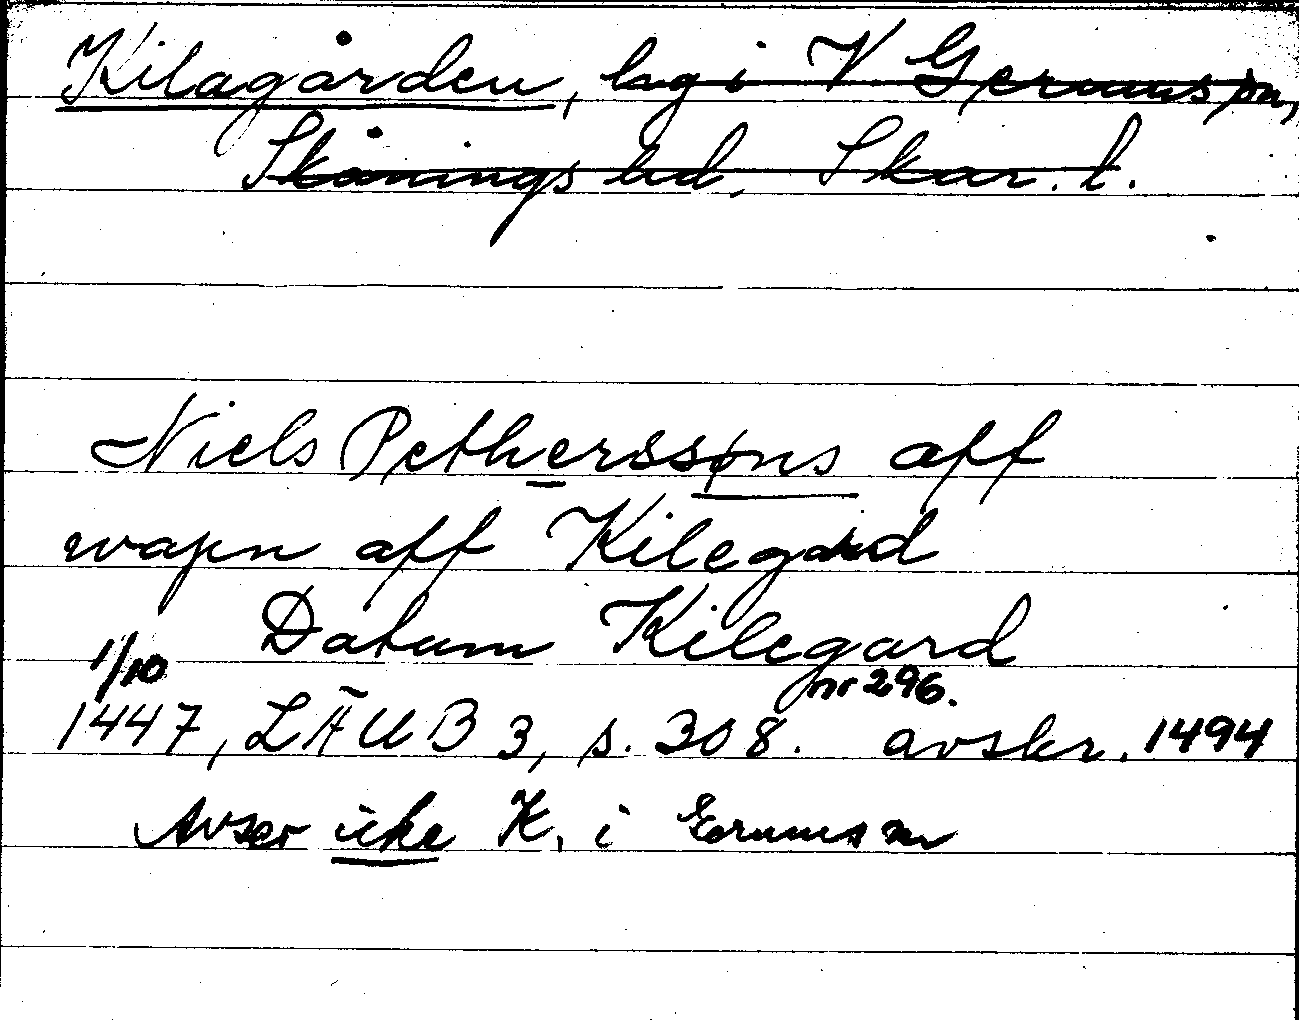 Kilagården, bg i V Gerums sn,
Skånings hd, Skar. l.
Niels Petherssøns aff
wapn aff Kilegard
Datum Kilegard
1/10 nr 296.
1447, LÄUB 3, s. 308. avskr. 1494
Avser icke K. i Gerums sn